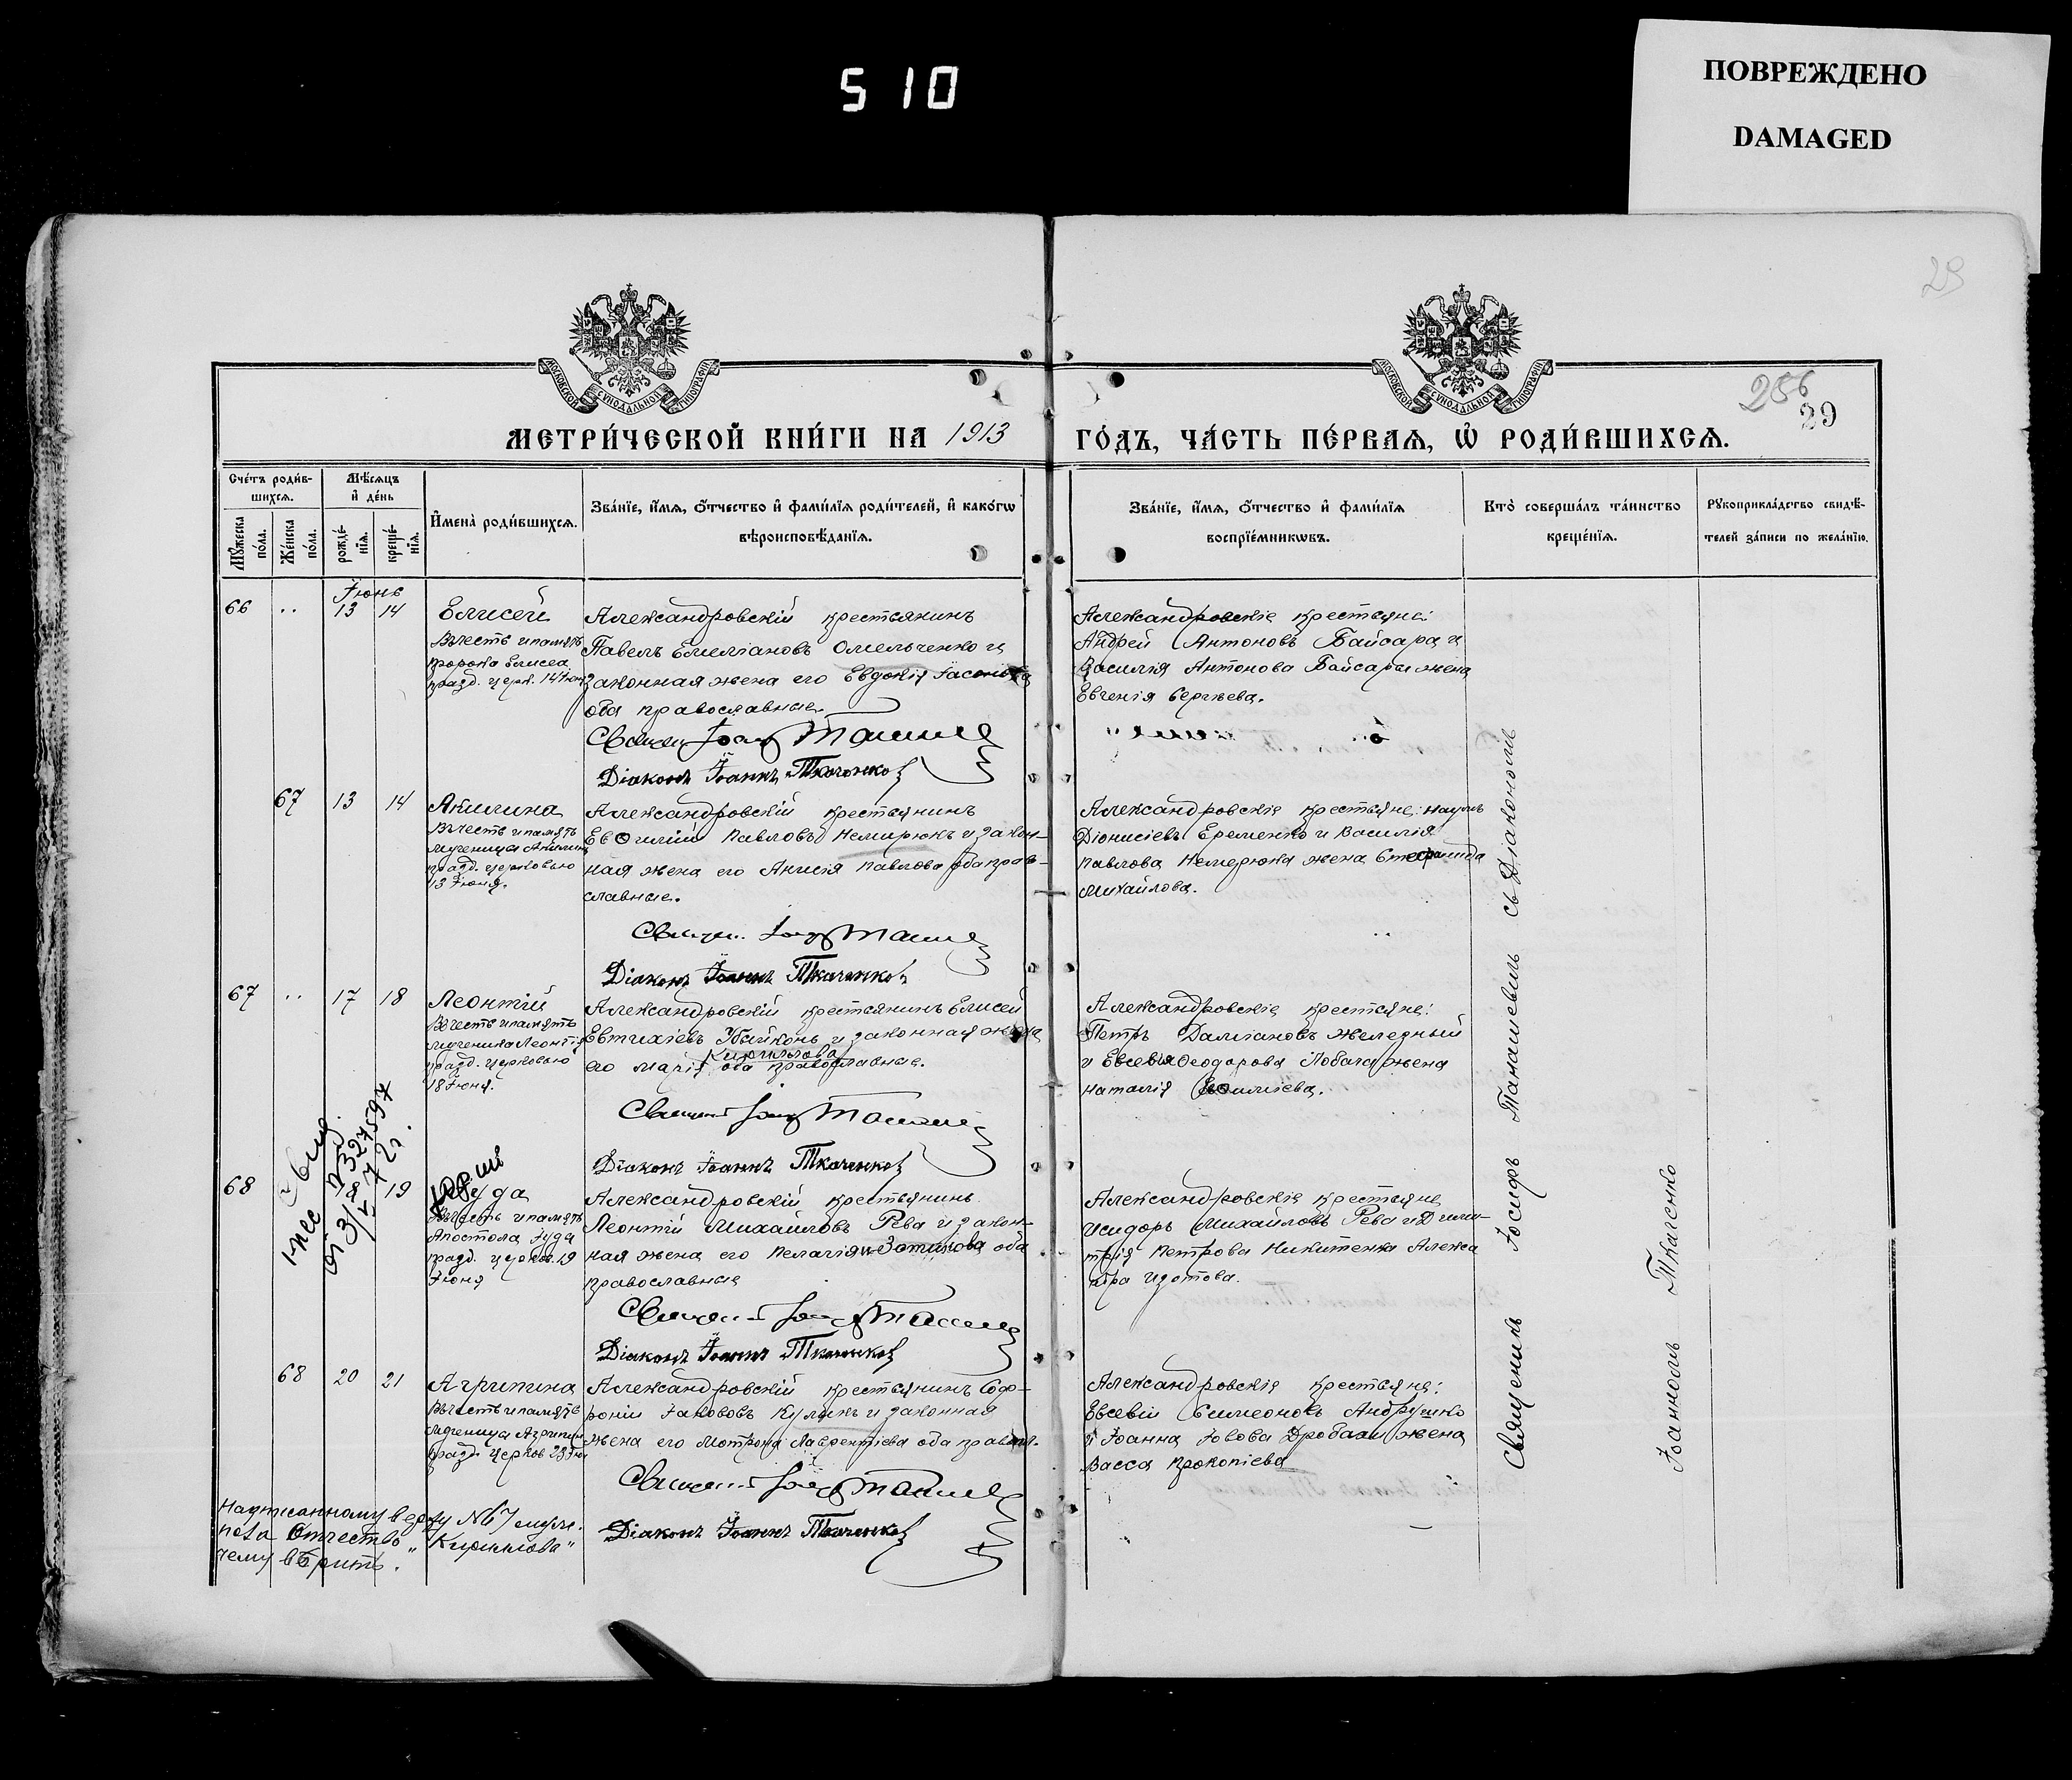 510
ПОВРЕЖДЕНО
DAMAGED
29
256
29
МОСКОВСКОЙ СУНОДАЛЬНОЙ ТИПОГРАФІИ
МОСКОВСКОЙ СУНОДАЛЬНОЙ ТИПОГРАФІИ
МЕТРИ́ЧЕСКОЙ КНИ́ГИ НА 1913 ГО́ДЪ, ЧА́СТЬ ПЕ́РВАѦ, Ѡ҆ РОДИ́ВШИХСѦ.
Сче́тъ роди́в-
шихсѧ.
Мꙋ́жеска по́ла.
Же́нска по́ла.
Мѣ́сѧцъ
и҆ де́нь
рожде́-
нїѧ.
креще́-
нїѧ.
И҆мена̀ роди́вшихсѧ.
Зва́нїе, и҆́мѧ, ѻ҆́тчество и҆ фами́лїѧ роди́телей, и҆ како́гѡ
вѣроисповѣ́данїѧ.
Зва́нїе, и҆́мѧ, ѻ҆́тчество и҆ фами́лїѧ
воспрїе́мникѡвъ.
Кто̀ соверша́лъ та́инство
креще́нїѧ.
Рꙋкоприкла́дство свидѣ́-
телей за́писи по жела́нїю.
Іюнь
66 .. 13 14 Елисей
Въ честь и память
пророка Елисея
празд. церк. 14 Іюн
Александровскій крестьянинъ
Павелъ Емеліановъ Омельченко и
законная жена его Евдокія Іасонова
оба православные.
Священ Іоаг
Діаконъ Іоаннъ Ткаченко
Александровскіе крестьяне:
Андрей Антоновъ Байсара и
Василія Антонова Байсары жена
Евгенія Сергіева.
67 13 14 Акилина
Въ честь и память
мученицы Акилин
празд. церковью
13 Іюня.
Александровскій крестьянинъ
Евѳимій Павловъ Немирюкъ и закон-
ная жена его Анисія Павлова оба прав-
славные.
Священ.
Діаконъ Іоаннъ Ткаченко
Александровскіе крестьяне: Наумъ
Діонисіевъ Еременко и Василія
Павлова Немерюка жена Стефанида
Михайлова.
67 .. 17 18 Леонтій
Въ честь и память
мученика Леонтія
празд. церковью
18 Іюня.
Александровскій крестьянинъ Елисей
Евтихіевъ и законная жена
Кириллова
его Марія оба православные.
Священ
Діаконъ Іоаннъ Ткаченко
Александровскіе крестьяне:
Петръ Даміановъ Железный
и Евсевія Ѳеодорова Лобача жена
Наталія
№ 327597
68 18 19 Іуда
Въ честь и память
Апостола Іуда
празд. церков. 19
Іюня
Александровскій крестьянинъ
Леонтій Михаиловъ Рева и закон-
ная жена его Пелагія Зотикова оба
православные
Священ
Діаконъ Іоаннъ Ткаченко
Александровскіе крестьяне
Исидоръ Михайловъ Рева и Дими-
трія Петрова Никитенка Алекса
Изотова.
68 20 21 Агрипина
Въ честь и память
мученицы Агрипин
празд. церков 23 Іюн
Александровскій крестьянинъ Соф-
роній Іакововъ Куликъ и законная
жена его Мотрона Лаврентіева оба правсл.
Священ
Діаконъ Іоаннъ Ткаченко
Александровскіе крестьяне:
Евсевій Симеоновъ Андрушко
и Іоанна Іовова жена
Васса Прокопіева
Надписанному вверху №67 муж.
пола Отчество „Кириллова“
чему вѣрить.
Священникъ Іосифъ Танашевичъ съ Діакономъ
Іоанномъ Ткаченко